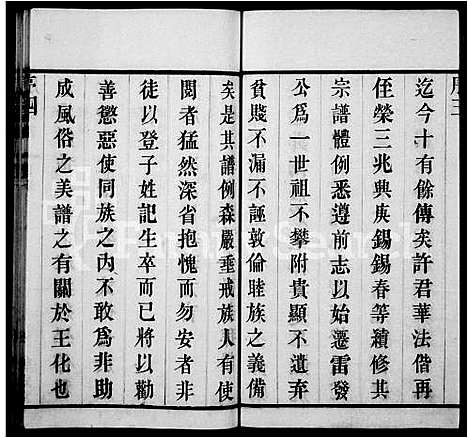 序三
迄今十有餘傳矣許君華法偕再
侄榮三兆興庚錫錫春等續修其
宗譜體例悉遵前志以始遷雷發
公爲一世祖不攀附貴顯不遺弃
貧賤不漏不誣敦倫睦族之義備
矣是其譜例森嚴垂戒族人有使
閱者猛然深省抱愧而勿安者非
徒以登子姓記生卒而已將以勸
善懲惡使同族之內不敢爲非助
成風俗之美譜之有關於王化也
序四